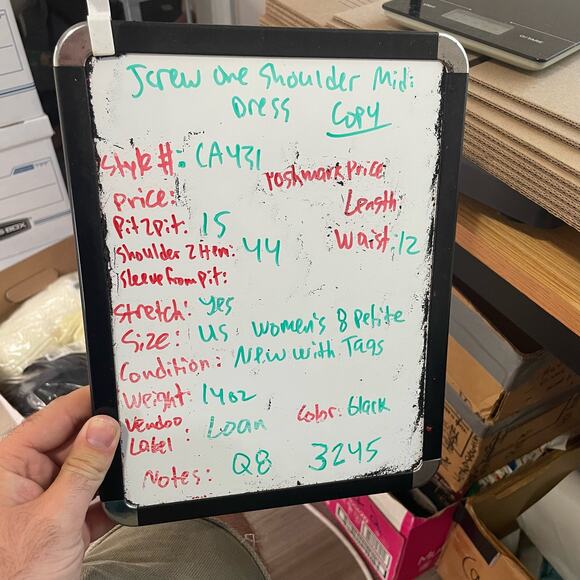 Jcrew One Shoulder Midi
Dress Copy
Style #: CA431
Poshmark Price
Price:
Length
Pit2pit: 15
Waist: 12
Shoulder 2 Hem: 44
Sleeve from pit:
Stretch: Yes
Size: US Women's 8 Petite
Condition: New with Tags
Weight: 14oz
Color: Black
Vendoo
Label: Loan
Notes: Q8 3245